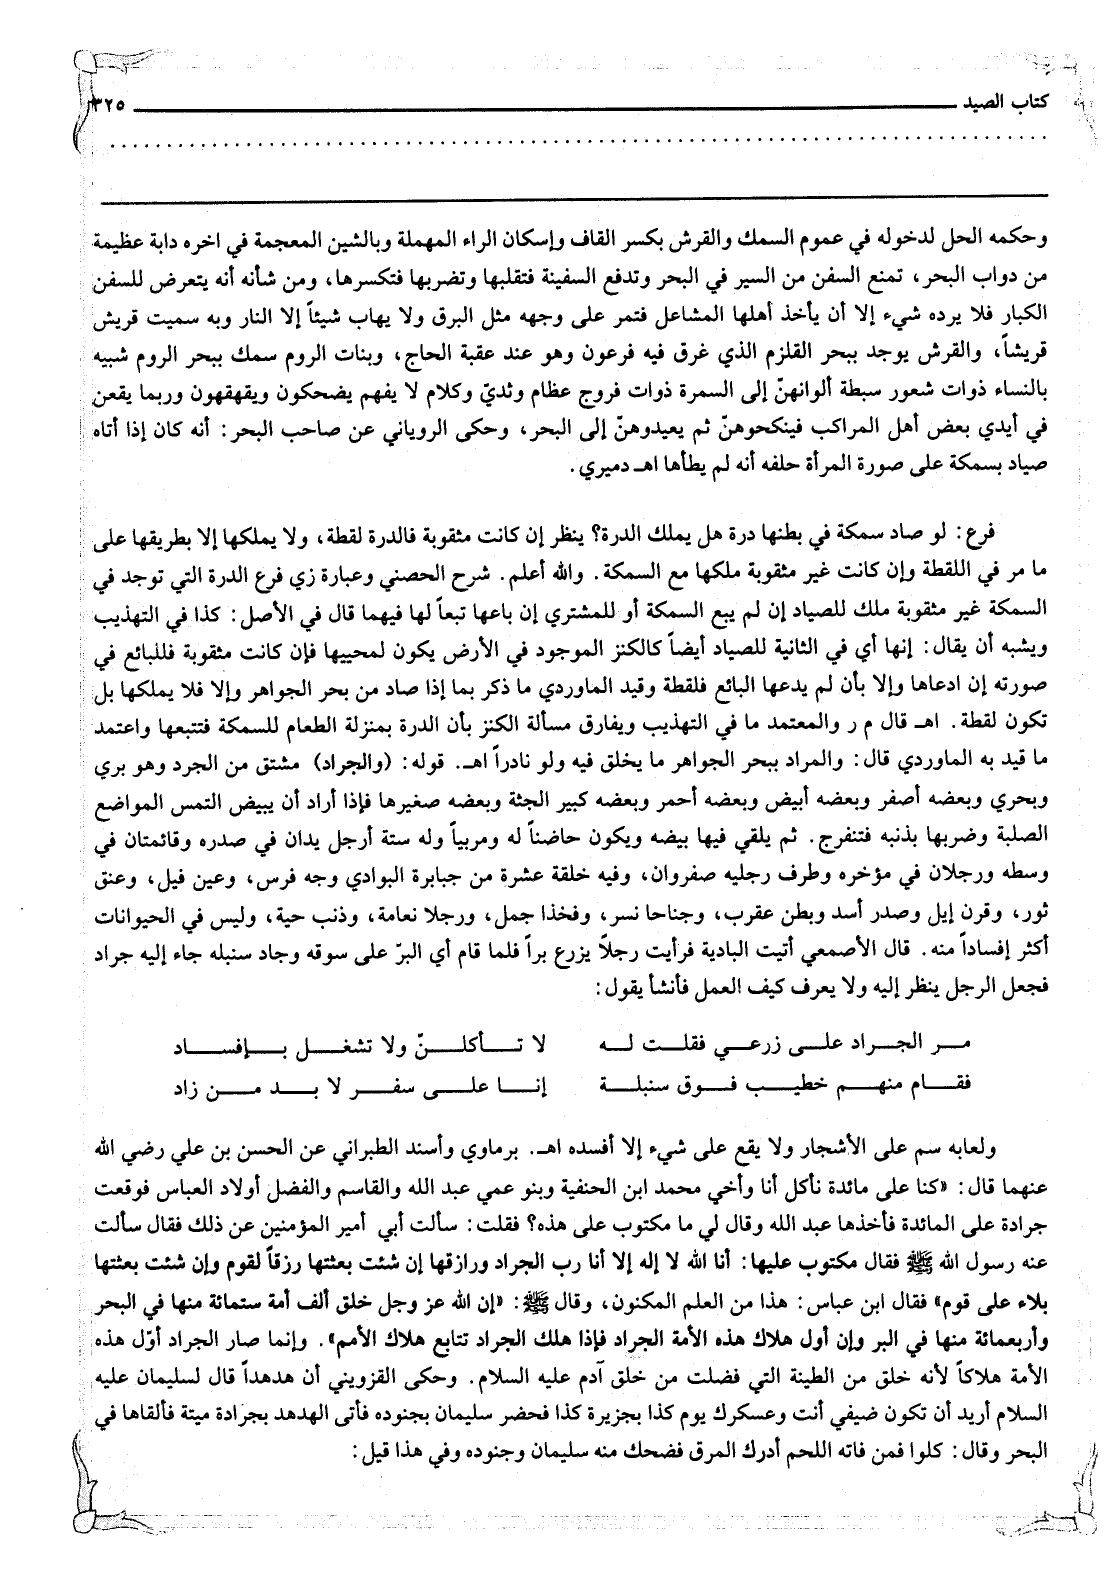 كتاب الصيد ٣٢٥
وحكمه الحل لدخوله في عموم السمك والقرش بكسر القاف وإسكان الراء المهملة وبالشين المعجمة في اخره دابة عظيمة
من دواب البحر، تمنع السفن من السير في البحر وتدفع السفينة فتقلبها وتضربها فتكسرها، ومن شأنه أنه يتعرض للسفن
الكبار فلا يرده شيء إلا أن يأخذ أهلها المشاعل فتمر على وجهه مثل البرق ولا يهاب شيئاً إلا النار وبه سميت قريش
قريشاً، والقرش يوجد ببحر القلزم الذي غرق فيه فرعون وهو عند عقبة الحاج، وبنات الروم سمك ببحر الروم شبيه
بالنساء ذوات شعور سبطة ألوانهنّ إلى السمرة ذوات فروج عظام وثديّ وكلام لا يفهم يضحكون ويقهقهون وربما يقعن
في أيدي بعض أهل المراكب فينكحوهنّ ثم يعيدوهنّ إلى البحر، وحكى الروياني عن صاحب البحر: أنه كان إذا أتاه
صياد بسمكة على صورة المرأة حلفه أنه لم يطأها اهـ دميري.
فرع: لو صاد سمكة في بطنها درة هل يملك الدرة؟ ينظر إن كانت مثقوبة فالدرة لقطة، ولا يملكها إلا بطريقها على
ما مر في اللقطة وإن كانت غير مثقوبة ملكها مع السمكة. والله أعلم. شرح الحصني وعبارة زي فرع الدرة التي توجد في
السمكة غير مثقوبة ملك للصياد إن لم يبع السمكة أو للمشتري إن باعها تبعاً لها فيهما قال في الأصل: كذا في التهذيب
ويشبه أن يقال: إنها أي في الثانية للصياد أيضاً كالكنز الموجود في الأرض يكون لمحييها فإن كانت مثقوبة فللبائع في
صورته إن ادعاها وإلا بأن لم يدعها البائع فلقطة وقيد الماوردي ما ذكر بما إذا صاد من بحر الجواهر وإلا فلا يملكها بل
تكون لقطة. اهـ قال م ر والمعتمد ما في التهذيب ويفارق مسألة الكنز بأن الدرة بمنزلة الطعام للسمكة فتتبعها واعتمد
ما قيد به الماوردي قال: والمراد ببحر الجواهر ما يخلق فيه ولو نادراً اهـ. قوله: (والجراد) مشتق من الجرد وهو بري
وبحري وبعضه أصفر وبعضه أبيض وبعضه أحمر وبعضه كبير الجثة وبعضه صغيرها فإذا أراد أن يبيض التمس المواضع
الصلبة وضربها بذنبه فتنفرج. ثم يلقي فيها بيضه ويكون حاضناً له ومربياً وله ستة أرجل يدان في صدره وقائمتان في
وسطه ورجلان في مؤخره وطرف رجليه صفروان، وفيه خلقة عشرة من جبابرة البوادي وجه فرس، وعين فيل، وعنق
ثور، وقرن إيل وصدر أسد وبطن عقرب، وجناحا نسر، وفخذا جمل، ورجلا نعامة، وذنب حية، وليس في الحيوانات
أكثر إفساداً منه. قال الأصمعي أتيت البادية فرأيت رجلاً يزرع براً فلما قام أي البرّ على سوقه وجاد سنبله جاء إليه جراد
فجعل الرجل ينظر إليه ولا يعرف كيف العمل فأنشأ يقول:
مر الجراد على زرعي فقلت له لا تأكلنّ ولا تشغل بإفساد
فقام منهم خطيب فوق سنبلة إنا على سفر لا بد من زاد
ولعابه سم على الأشجار ولا يقع على شيء إلا أفسده اهـ. برماوي وأسند الطبراني عن الحسن بن علي رضي الله
عنهما قال: «كنا على مائدة نأكل أنا وأخي محمد ابن الحنفية وبنو عمي عبد الله والقاسم والفضل أولاد العباس فوقعت
جرادة على المائدة فأخذها عبد الله وقال لي ما مكتوب على هذه؟ فقلت: سألت أبي أمير المؤمنين عن ذلك فقال سألت
عنه رسول الله ﷺ فقال مكتوب عليها: أنا الله لا إله إلا أنا رب الجراد ورازقها إن شئت بعثتها رزقاً لقوم وإن شئت بعثتها
بلاء على قوم» فقال ابن عباس: هذا من العلم المكنون، وقال ﷺ: «إن الله عز وجل خلق ألف أمة ستمائة منها في البحر
وأربعمائة منها في البر وإن أول هلاك هذه الأمة الجراد فإذا هلك الجراد تتابع هلاك الأمم». وإنما صار الجراد أوّل هذه
الأمة هلاكاً لأنه خلق من الطينة التي فضلت من خلق آدم عليه السلام. وحكى القزويني أن هدهداً قال لسليمان عليه
السلام أريد أن تكون ضيفي أنت وعسكرك يوم كذا بجزيرة كذا فحضر سليمان بجنوده فأتى الهدهد بجرادة ميتة فألقاها في
البحر وقال: كلوا فمن فاته اللحم أدرك المرق فضحك منه سليمان وجنوده وفي هذا قيل: